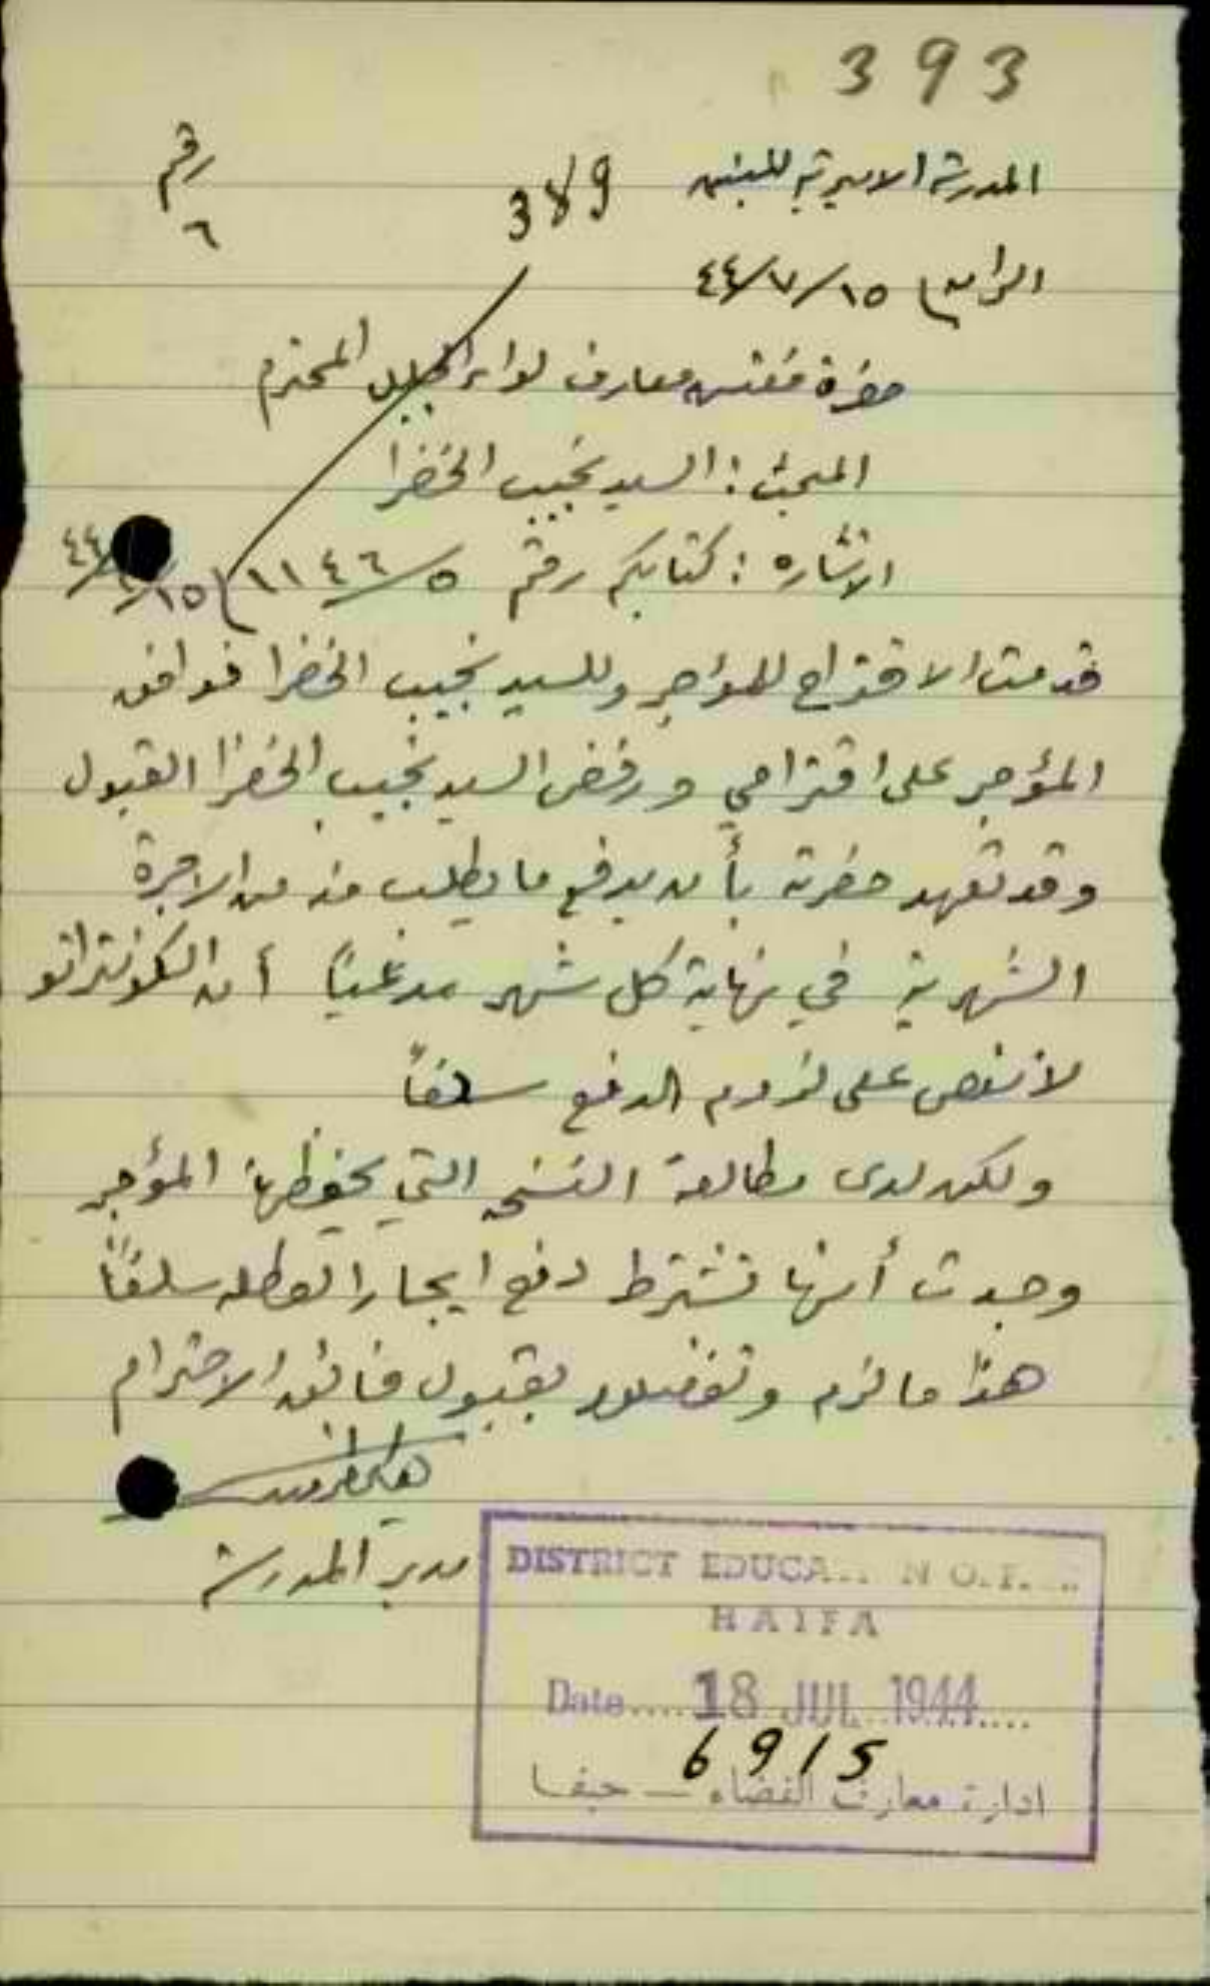 393
المدرسة الاميرية للبنين 389 رقم
٦
الرامه ١٥/٧/٤٤
حضرة مفتش معارف لواء الجليل المحترم
المبحث : السيد نجيب الخضرا
الاشاره : كتابكم رقم ١١٤٦/٥ ١٥/ /٤٤
قدمت الاقتراح للمؤجر وللسيد نجيب الخضرا فوافق
المؤجر على اقتراحي ورفض السيد نجيب الخضرا القبول
وقد تعهد حضرته بأن يدفع ما يطلب منه من الاجرة
الشهرية في نهاية كل شهر مدعياً أن الكونتراتو
لا تنص على لزوم الدفع سلفاً
ولكن لدى مطالعة النسخه التي يحفظها المؤجر
وجدت أنها تشترط دفع ايجار العطله سلفاً
هذا ما لزم وتفضلوا بقبول فائق الاحترام
مدير المدرسة
DISTRICT EDUCA N O
HAIFA
Date.... 18 JUL 1944
6915
ادارة معارف القضاء – حيفا